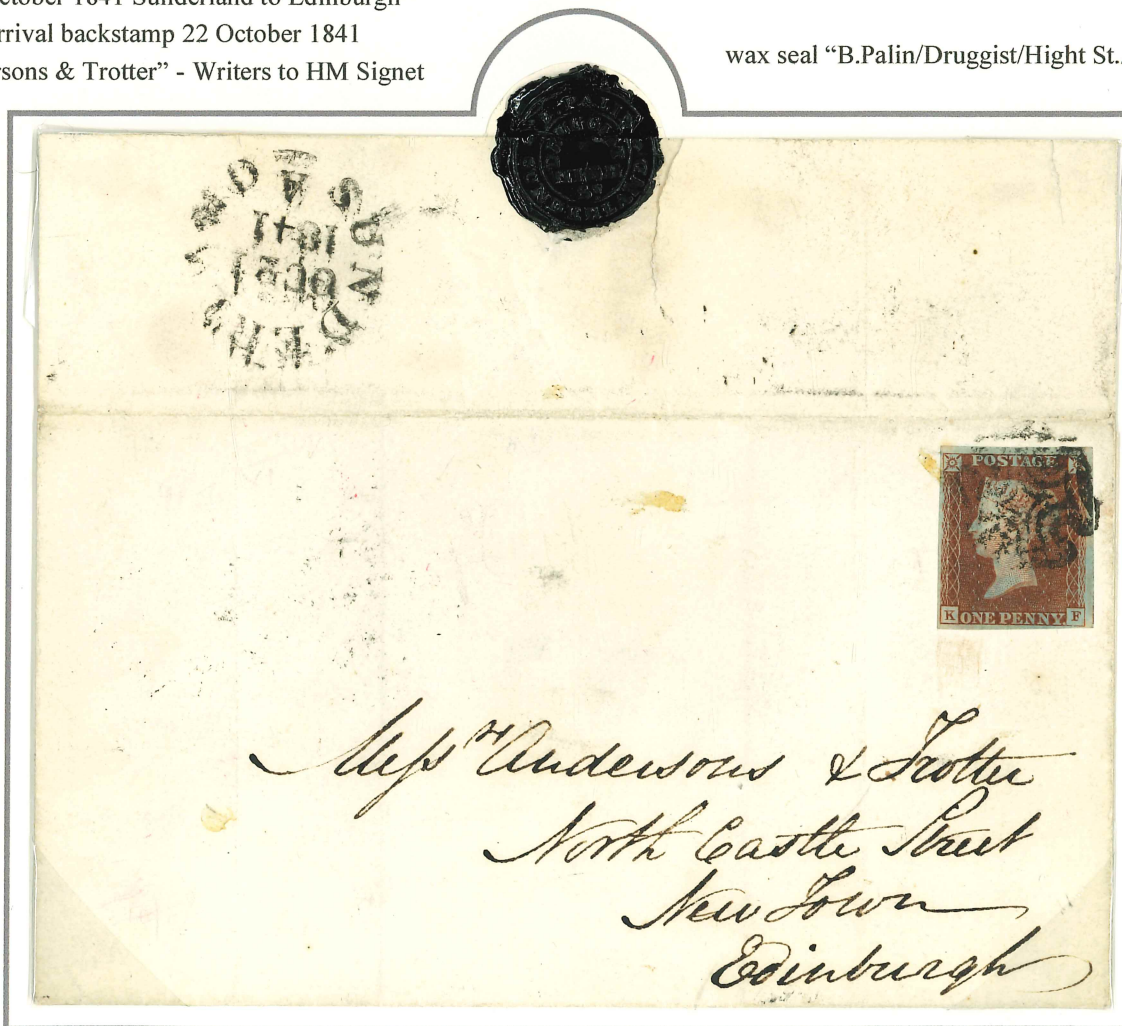 October 1841 Sunderland to Edinburgh
rrival backstamp 22 October 1841
rsons & Trotter” - Writers to HM Signet
wax seal “B.Palin/Druggist/Hight St.
PALIN
SUNDERLAND
OC 21
1841
A
POSTAGE
K ONE PENNY F
Messrs Andersons & Trotter
North Castle Street
New Town
Edinburgh